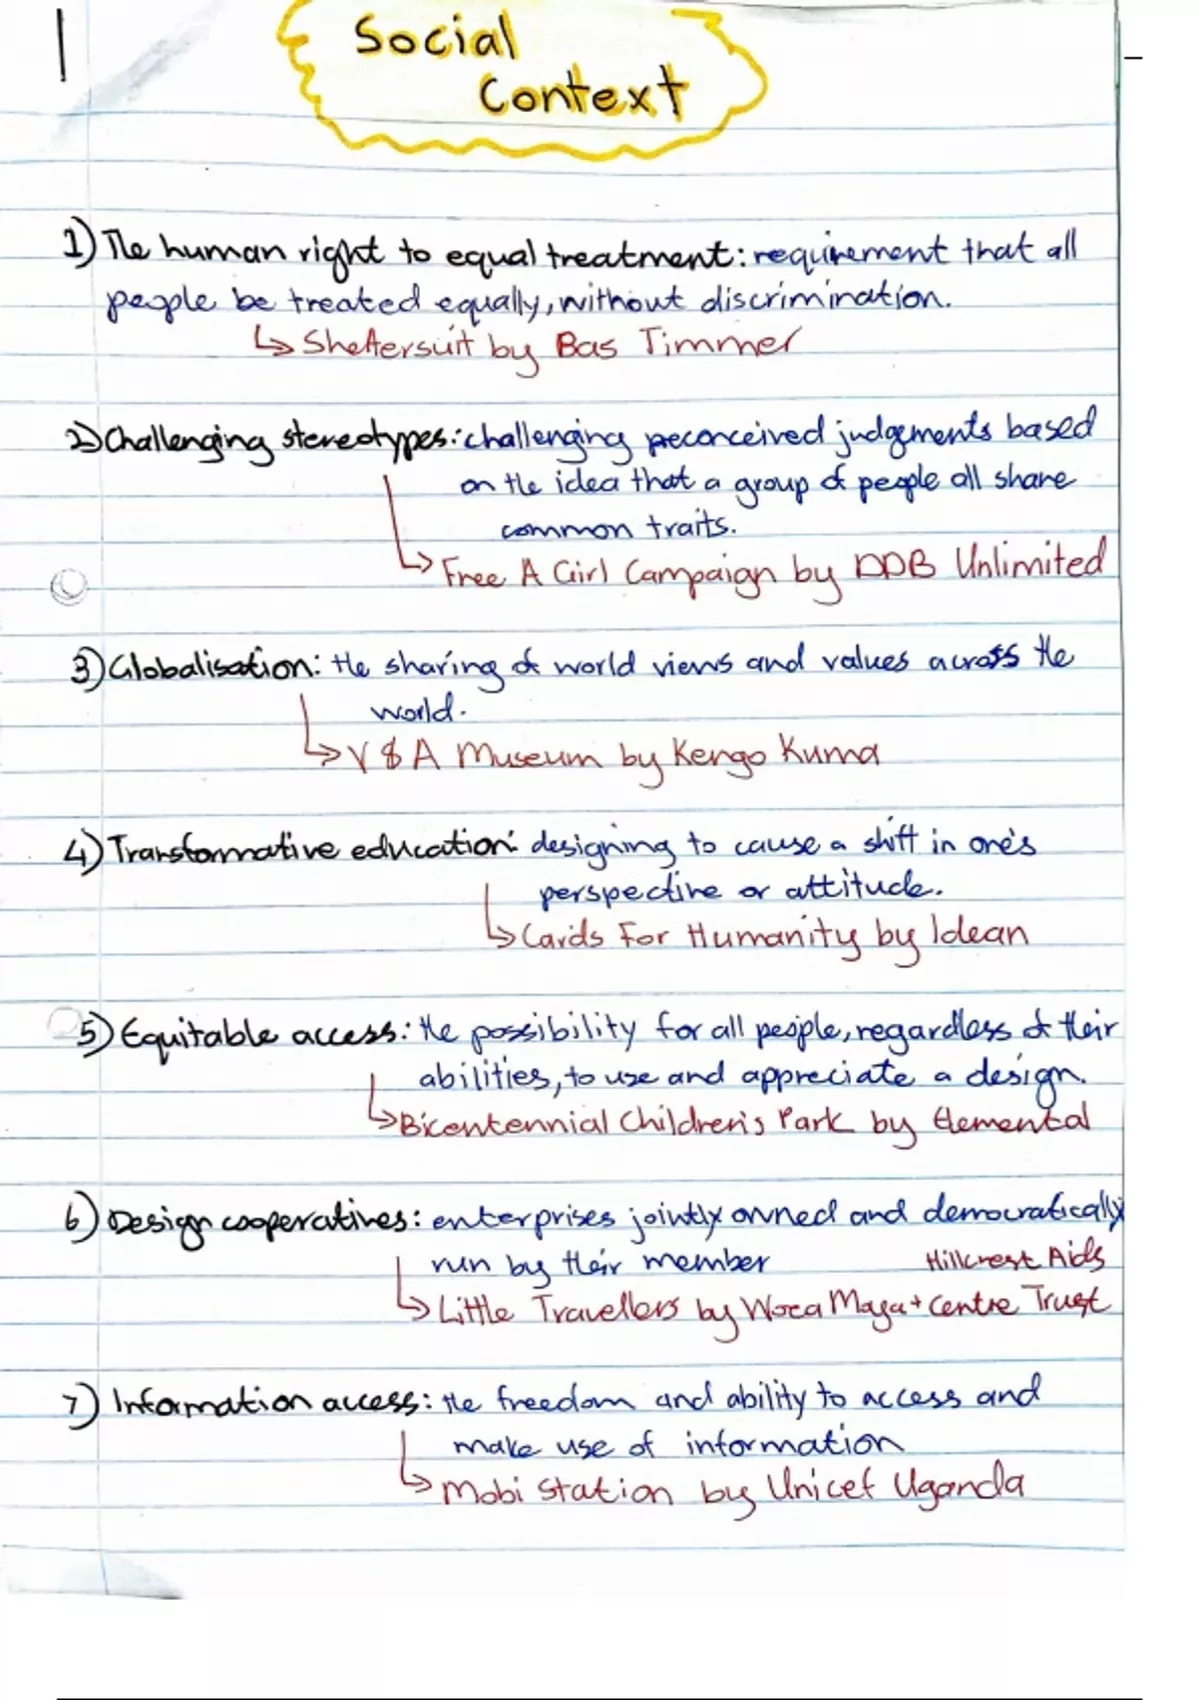 Social
Context
1) The human right to equal treatment: requirement that all
people be treated equally, without discrimination.
↳ Sheltersuit by Bas Timmer
2) Challenging stereotypes: challenging preconceived judgements based
on the idea that a group of people all share
common traits.
↳ Free A Girl Campaign by DDB Unlimited
3) Globalisation: the sharing of world views and values across the
world.
↳ V & A Museum by Kengo Kuma
4) Transformative education: designing to cause a shift in one's
perspective or attitude.
↳ Cards For Humanity by Idean
5) Equitable access: the possibility for all people, regardless of their
abilities, to use and appreciate a design.
↳ Bicentennial Children's Park by Elemental
6) Design cooperatives: enterprises jointly owned and democratically
run by their member
Hillcrest Aids
↳ Little Travellers by Woza Moya + Centre Trust
7) Information access: the freedom and ability to access and
make use of information
↳ Mobi Station by Unicef Uganda